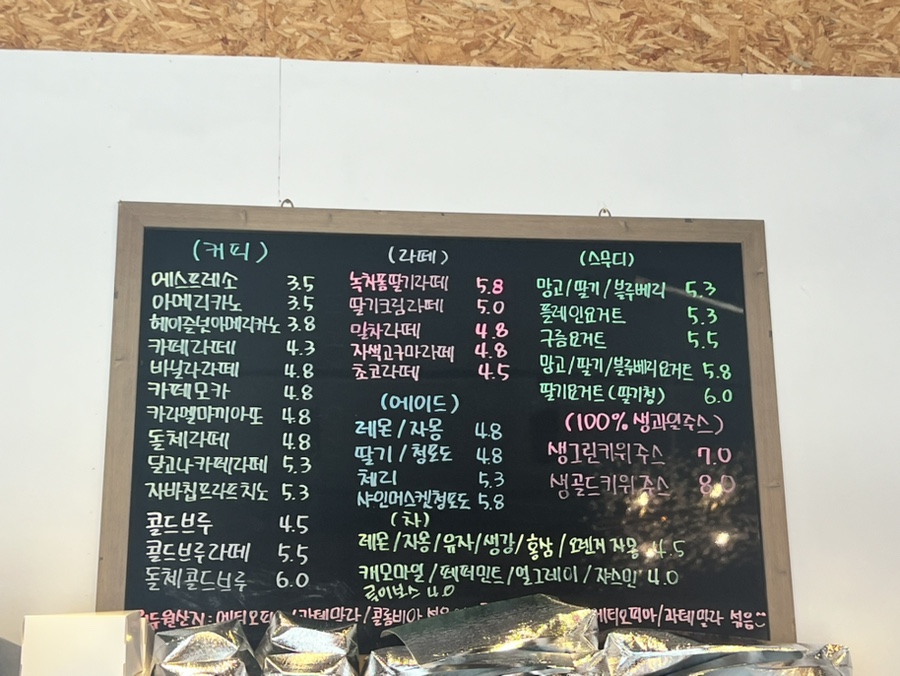 (커피)
에스프레소 3.5
아메리카노 3.5
헤이즐넛아메리카노 3.8
카페라떼 4.3
바닐라라떼 4.8
카페모카 4.8
카라멜마끼아또 4.8
돌체라떼 4.8
달고나카페라떼 5.3
자바칩프라프치노 5.3
콜드브루 4.5
콜드브루라떼 5.5
돌체콜드브루 6.0
(라떼)
녹차퐁딸기라떼 5.8
딸기크림라떼 5.0
말차라떼 4.8
자색고구마라떼 4.8
초코라떼 4.5
(에이드)
레몬/자몽 4.8
딸기/청포도 4.8
체리 5.3
샤인머스켓청포도 5.8
(차)
레몬/자몽/유자/생강/홍삼/오렌지자몽 4.5
캐모마일/페퍼민트/얼그레이/쟈스민 4.0
루이보스 4.0
(스무디)
망고/딸기/블루베리 5.3
플레인요거트 5.3
구름요거트 5.5
망고/딸기/블루베리요거트 5.8
딸기요거트(딸기청) 6.0
(100% 생과일주스)
생그린키위주스 7.0
생골드키위주스 8.0
두원산지: 에티오피아/과테말라/콜롬비아 에티오피아/과테말라 섞음